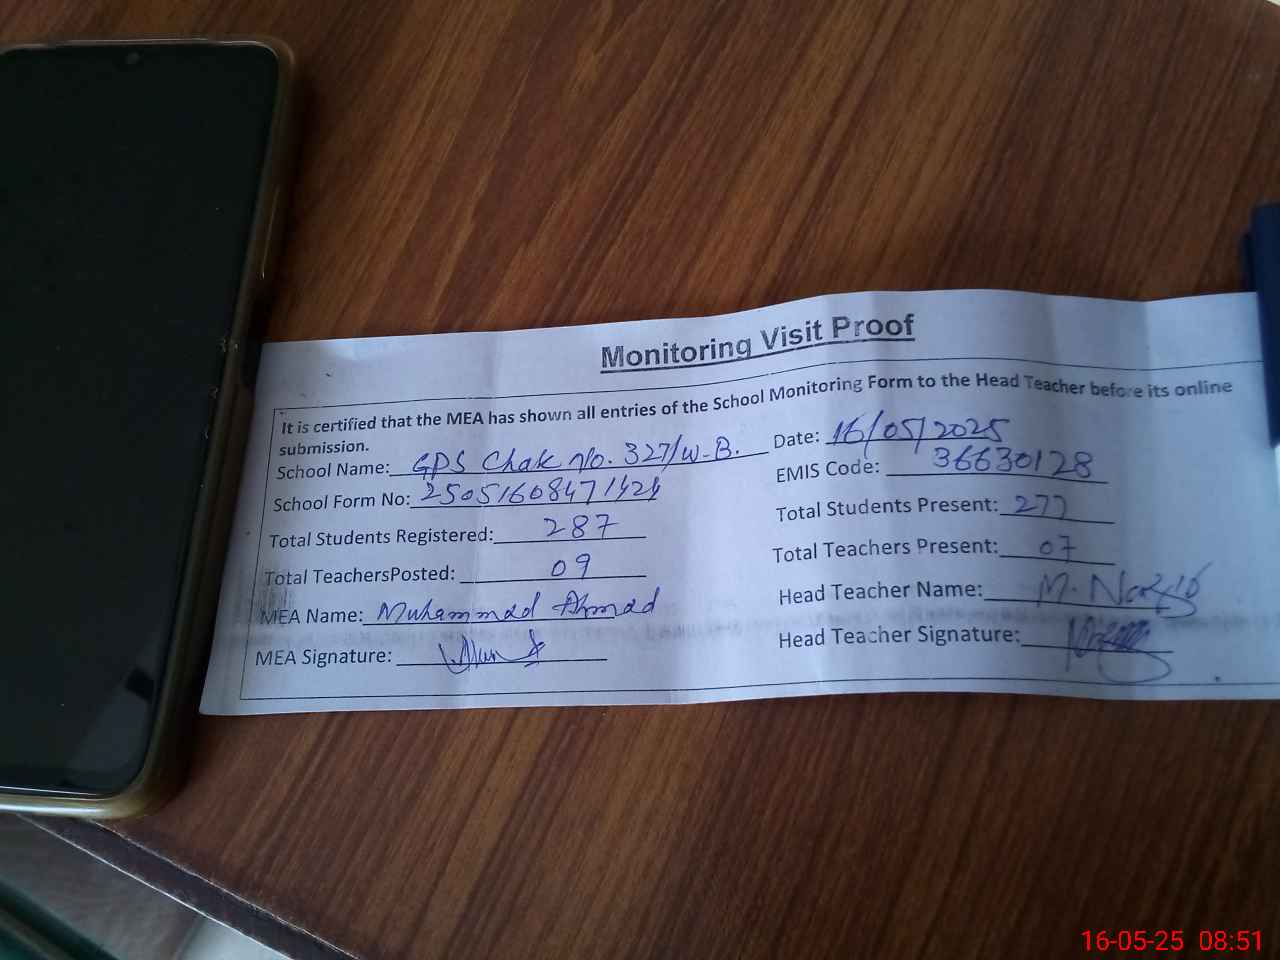 Monitoring Visit Proof
It is certified that the MEA has shown all entries of the School Monitoring Form to the Head Teacher before its online
submission.
School Name: GPS Chak No. 327/W.B. Date: 16/05/2025
School Form No: EMIS Code: 36630128
Total Students Registered: 287 Total Students Present: 277
Total TeachersPosted: 09 Total Teachers Present: 07
MEA Name: Muhammad Ahmad Head Teacher Name: M.
MEA Signature: Head Teacher Signature:
16-05-25 08:51